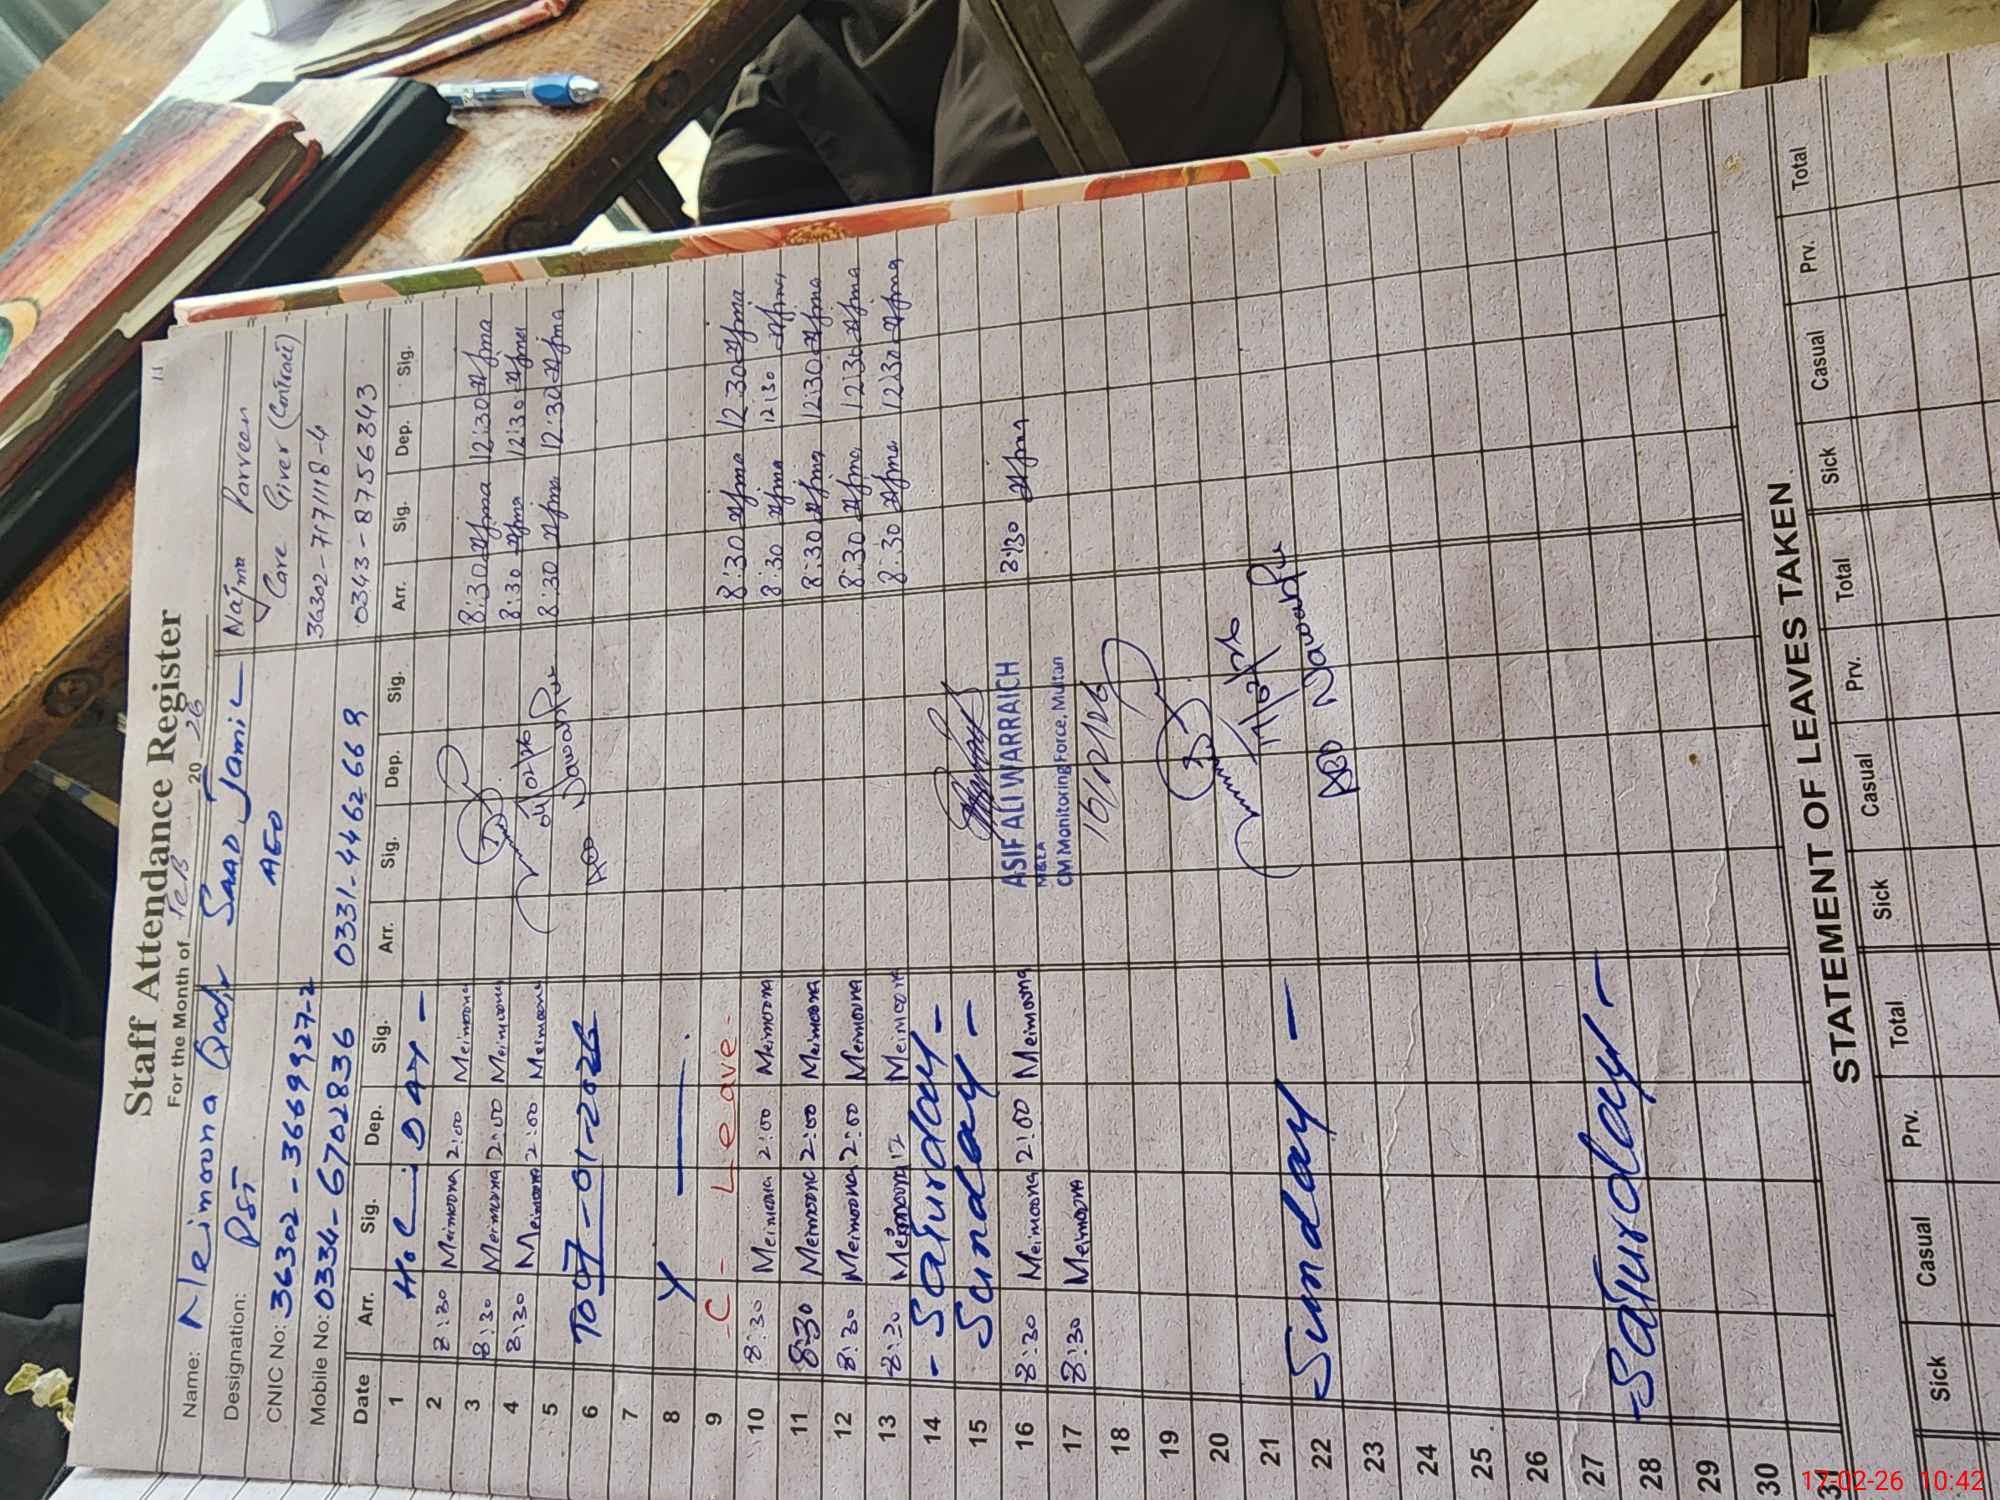 11
Staff Attendance Register
For the Month of Feb 2026
Name: Meimoona Qadir SAAD Jamil Najma Parveen
Designation: PST AEO Care Giver (Contract)
CNIC No: 36302-3669927-2 36302-7171118-4
Mobile No: 0334-6702836 0331-4462669 0343-8756343
Date Arr. Sig. Dep. Sig. Arr. Sig. Dep. Sig. Arr. Sig. Dep. Sig.
1 HoLiDAY -
2 8:30 Meimoona 2:00 Meimoona
3 8:30 Meimoona 2:00 Meimoona 8:30 Njma 12:30 Njma
4 8:30 Meimoona 2:00 Meimoona 8:30 Njma 12:30 Njma
5 8:30 Njma 12:30 Njma
6 To 07-01-2026 AEO Nawabpur
7
8
9 -C - Leave -
10 8:30 Meimoona 2:00 Meimoona 8:30 Njma 12:30 Njma
11 8:30 Meimoona 2:00 Meimoona 8:30 Njma 12:30 Njma
12 8:30 Meimoona 2:00 Meimoona 8:30 Njma 12:30 Njma
13 8:30 Meimoona 12 Meimoona 8:30 Njma 12:30 Njma
14 - Saturday -
15 Sunday -
16 8:30 Meimoona 2:00 Meimoona ASIF ALI WARRAICH 8:30 Njma
M&EA
17 8:30 Meimoona CM Monitoring Force, Multan
18
19
20
21
22 Sunday - AEO Nawabpur
23
24
25
26
27
28 -Saturday -
29
30
31
STATEMENT OF LEAVES TAKEN
Sick Casual Prv. Total Sick Casual Prv. Total Sick Casual Prv. Total
17-02-26 10:42